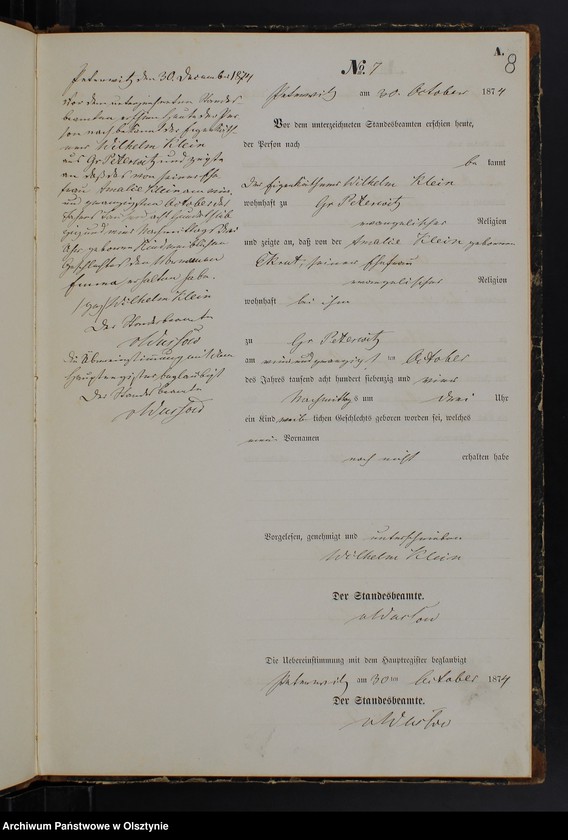 A.
8
No. 7
Peterwitz am 30. October 1874
Vor dem unterzeichneten Standesbeamten erschien heute,
der Person nach
be kannt
der Eigenkäthner Wilhelm Klein
wohnhaft zu Gr Peterwitz
evangelischer Religion
und zeigte an, daß von der Amalie Klein geborenen
seiner Ehefrau
evangelischer Religion
wohnhaft bei ihm
zu Gr Peterwitz
am neunundzwanzigsten October
des Jahres tausend acht hundert siebenzig und vier
Nachmittags um drei Uhr
ein Kind weiblichen Geschlechts geboren worden sei, welches
Vornamen
noch nicht erhalten habe
Vorgelesen, genehmigt und unterschrieben
Wilhelm Klein
Der Standesbeamte.
Die Uebereinstimmung mit dem Hauptregister beglaubigt
Peterwitz am 30ten October 1874
Der Standesbeamte.
Peterwitz den 30. Dezember 1874
Vor dem unterzeichneten Standes
beamten erschien heute der Per
son nach bekannt der Eigenkäth
ner Wilhelm Klein
aus Gr Peterwitz und zeigte
an daß das von seiner Ehe
frau Amalie Klein am neun
und zwanzigsten October des
Jahres tausend acht hundert sieb
zig und vier Nachmittags drei
Uhr geborene Kind weiblichen
Geschlechtes den Vornamen
Emma erhalten habe.
Wilhelm Klein
Der Standesbeamte
Die Übereinstimmung mit dem
Hauptregister beglaubigt
Der Standesbeamte
Archiwum Państwowe w Olsztynie